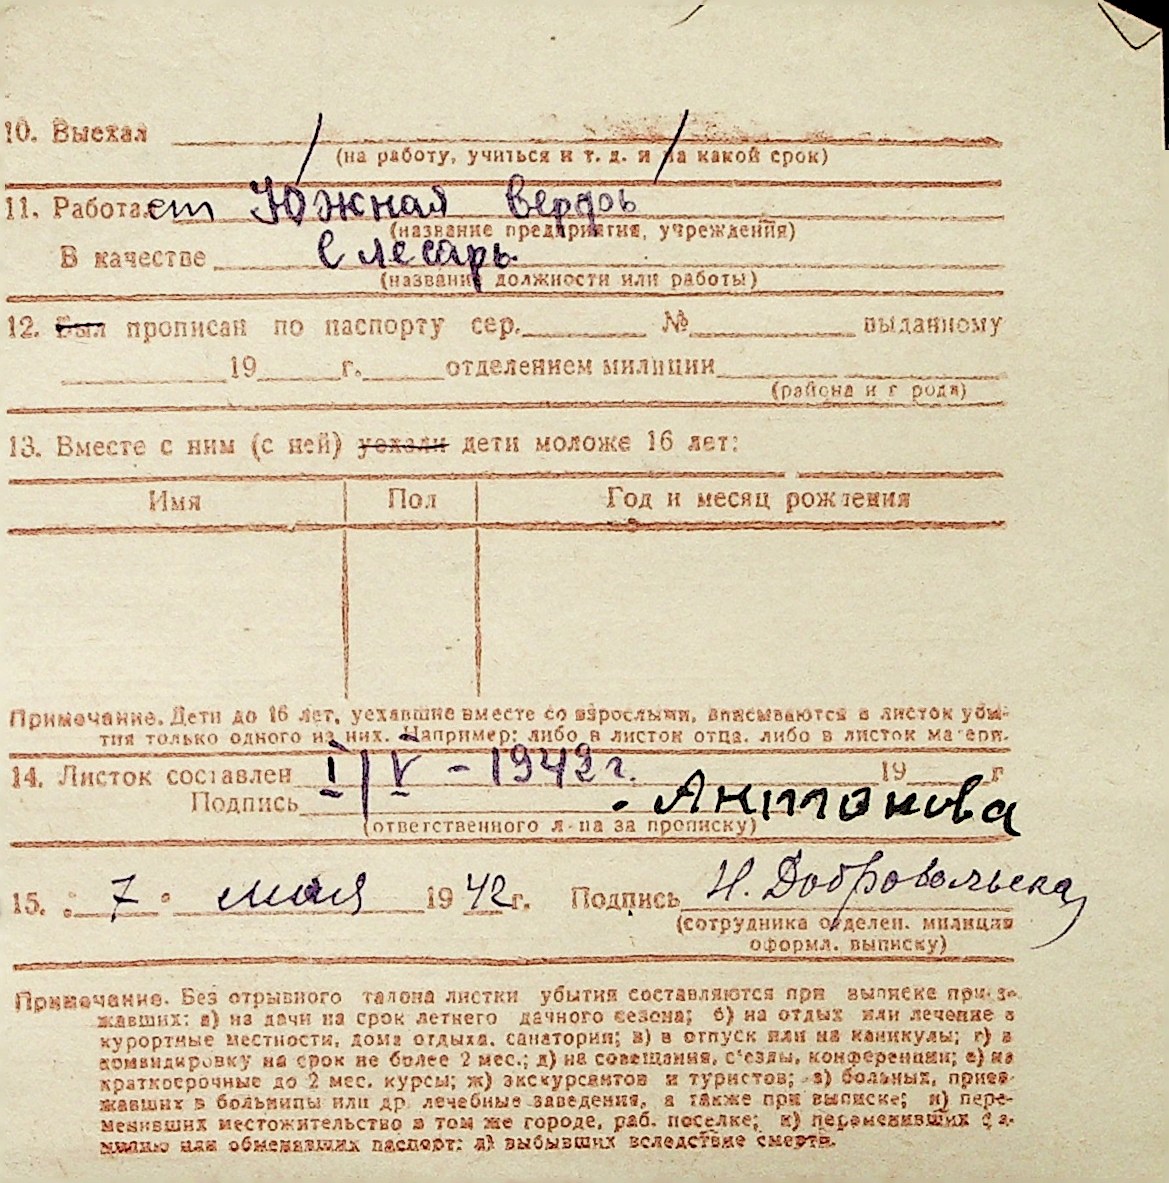 10. Выехал
(на работу, учиться и т. д. и на какой срок)
11. Работает Южная вердоь
(название предприятия, учреждения)
В качестве Слесарь
(название должности или работы)
12. Был прописан по паспорту сер. № выданному
19 г. отделением милиции
(района и города)
13. Вместе с ним (с ней) уехали дети моложе 16 лет:
Имя Пол Год и месяц рождения
Примечание. Дети до 16 лет, уехавшие вместе со взрослыми, вписываются в листок убы-
тия только одного из них. Например: либо в листок отца, либо в листок матери.
14. Листок составлен I/V – 1942 г. 19 г
Подпись Антонова
(ответственного л-ца за прописку)
15. " 7 " мая 1942 г. Подпись Н. Добровольска
(сотрудника отделен. милиции
оформл. выписку)
Примечание. Без отрывного талона листки убытия составляются при выписке приез-
жавших: а) на дачи на срок летнего дачного сезона; б) на отдых или лечение в
курортные местности, дома отдыха, санатории; в) в отпуск или на каникулы; г) в
командировку на срок не более 2 мес.; д) на совещания, съезды, конференции; е) на
краткосрочные до 2 мес. курсы; ж) экскурсантов и туристов; з) больных, приез-
жавших в больницы или др лечебные заведения, а также при выписке; и) пере-
менивших местожительство в том же городе, раб. поселке; к) переменивших фа-
милию или обменявших паспорт; л) выбывших вследствие смерти.